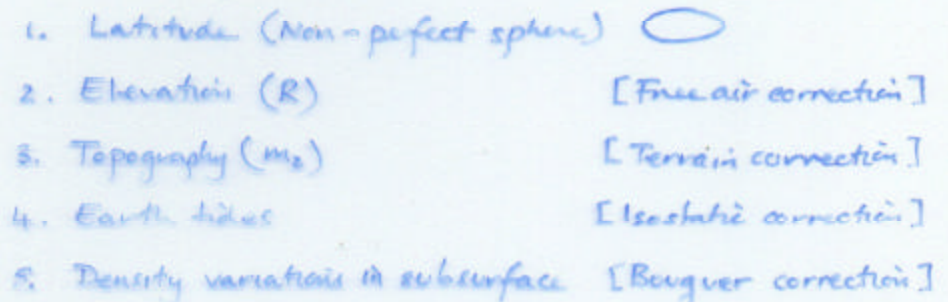 1. Latitude (Non-perfect sphere)
2. Elevation (R) [Free air correction]
3. Topography (m₂) [Terrain correction]
4. Earth tides [Isostatic correction]
5. Density variations in subsurface [Bouguer correction]